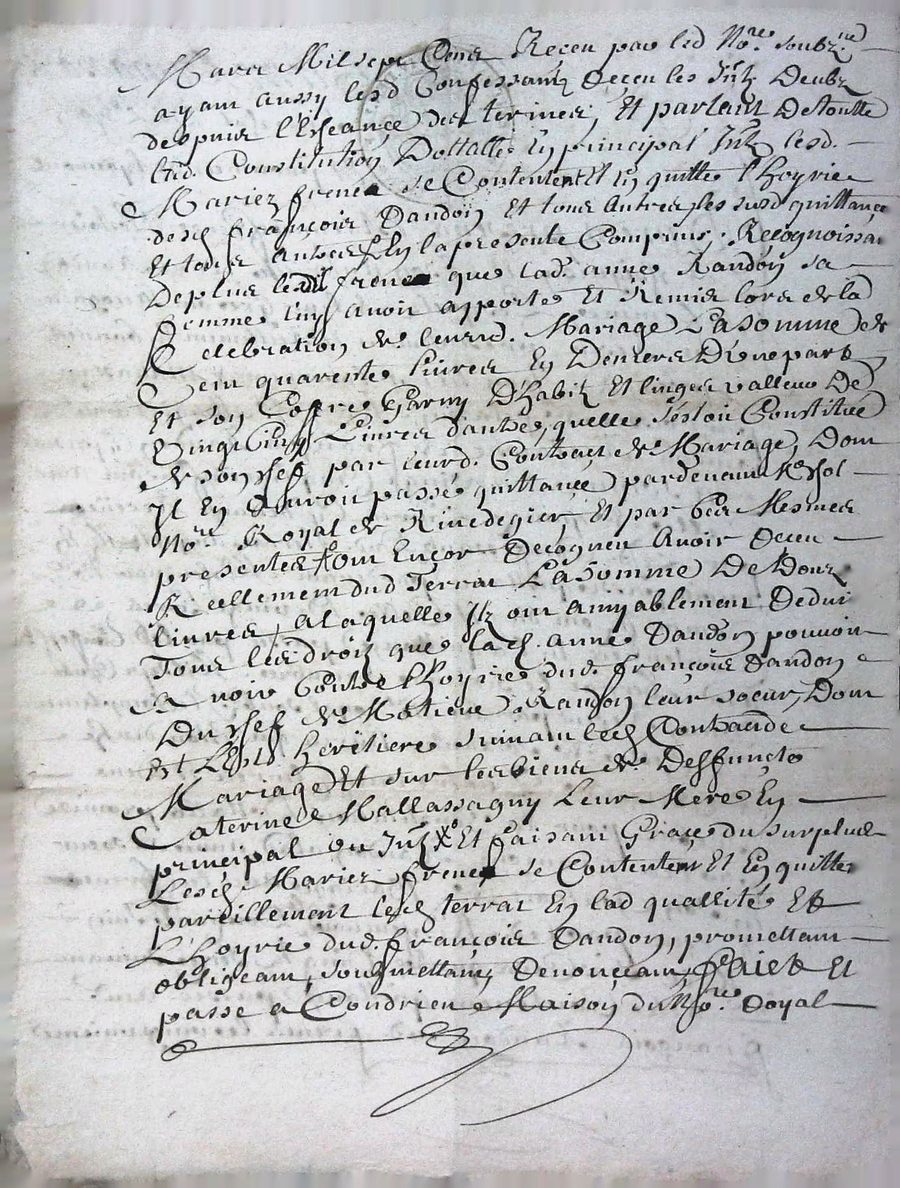 Mars Mil sept Cens Reçeu par led No.re soubz.né
ayant aussy lesd Confessantz Reçeu les Intz Deubz
despuis l'Escheançe des termes, Et partant De toutte
lad. Constitution Dottalle En principal Intz lesd.
Mariez frene se Contentent Et En quitte l'hoyrie
desd françois Randon Et tous Autres, les susd quittance
Et toutes Autres En la presente Comprins, Recognoissant
De plus lesdit frene que lad. anne Randon sa
femme luy avoir apporté Et Remis lors de la
Celebration de leurd. Mariage La somme de
Cent quarente livres En Deniers D'une part
Et son Coffre Garny D'habitz Et linges valleur De
Vingt Cinq Livres d'autre, quelle s'estoit Constituée
de son chef par leurd. Contract de Mariage, Dont
Il En auroit passé quittance pardevant
No.re Royal de Rivedegier, Et par Ces Mesmes
presentes ont Encor Recogneu Avoir Receu
Reellement dud Terrat La somme De Douze
livres, a laquelle Ilz ont amyablement Reduit
Tous les droitz que lad. anne Randon pouvoit
Avoir Contre l'hoyrie dud. françois Randon
Du chef de Matieue Randon leur soeur, Dont
Est heritiere suivant led Contract de
Mariage Et sur les biens de Deffuncte
Caterine Mallassagny Leur Mere En
principal ou Intz Et faisant Grace du surplus
Lesd. Mariez frene se Contentent Et En quitte
pareillement led terrat En lad quallité Et
L'hoyrie dud. françois Randon, promettant
obligeant, soubmettant, Renonceant, faict Et
passé a Condrieu Maison du No.re Royal